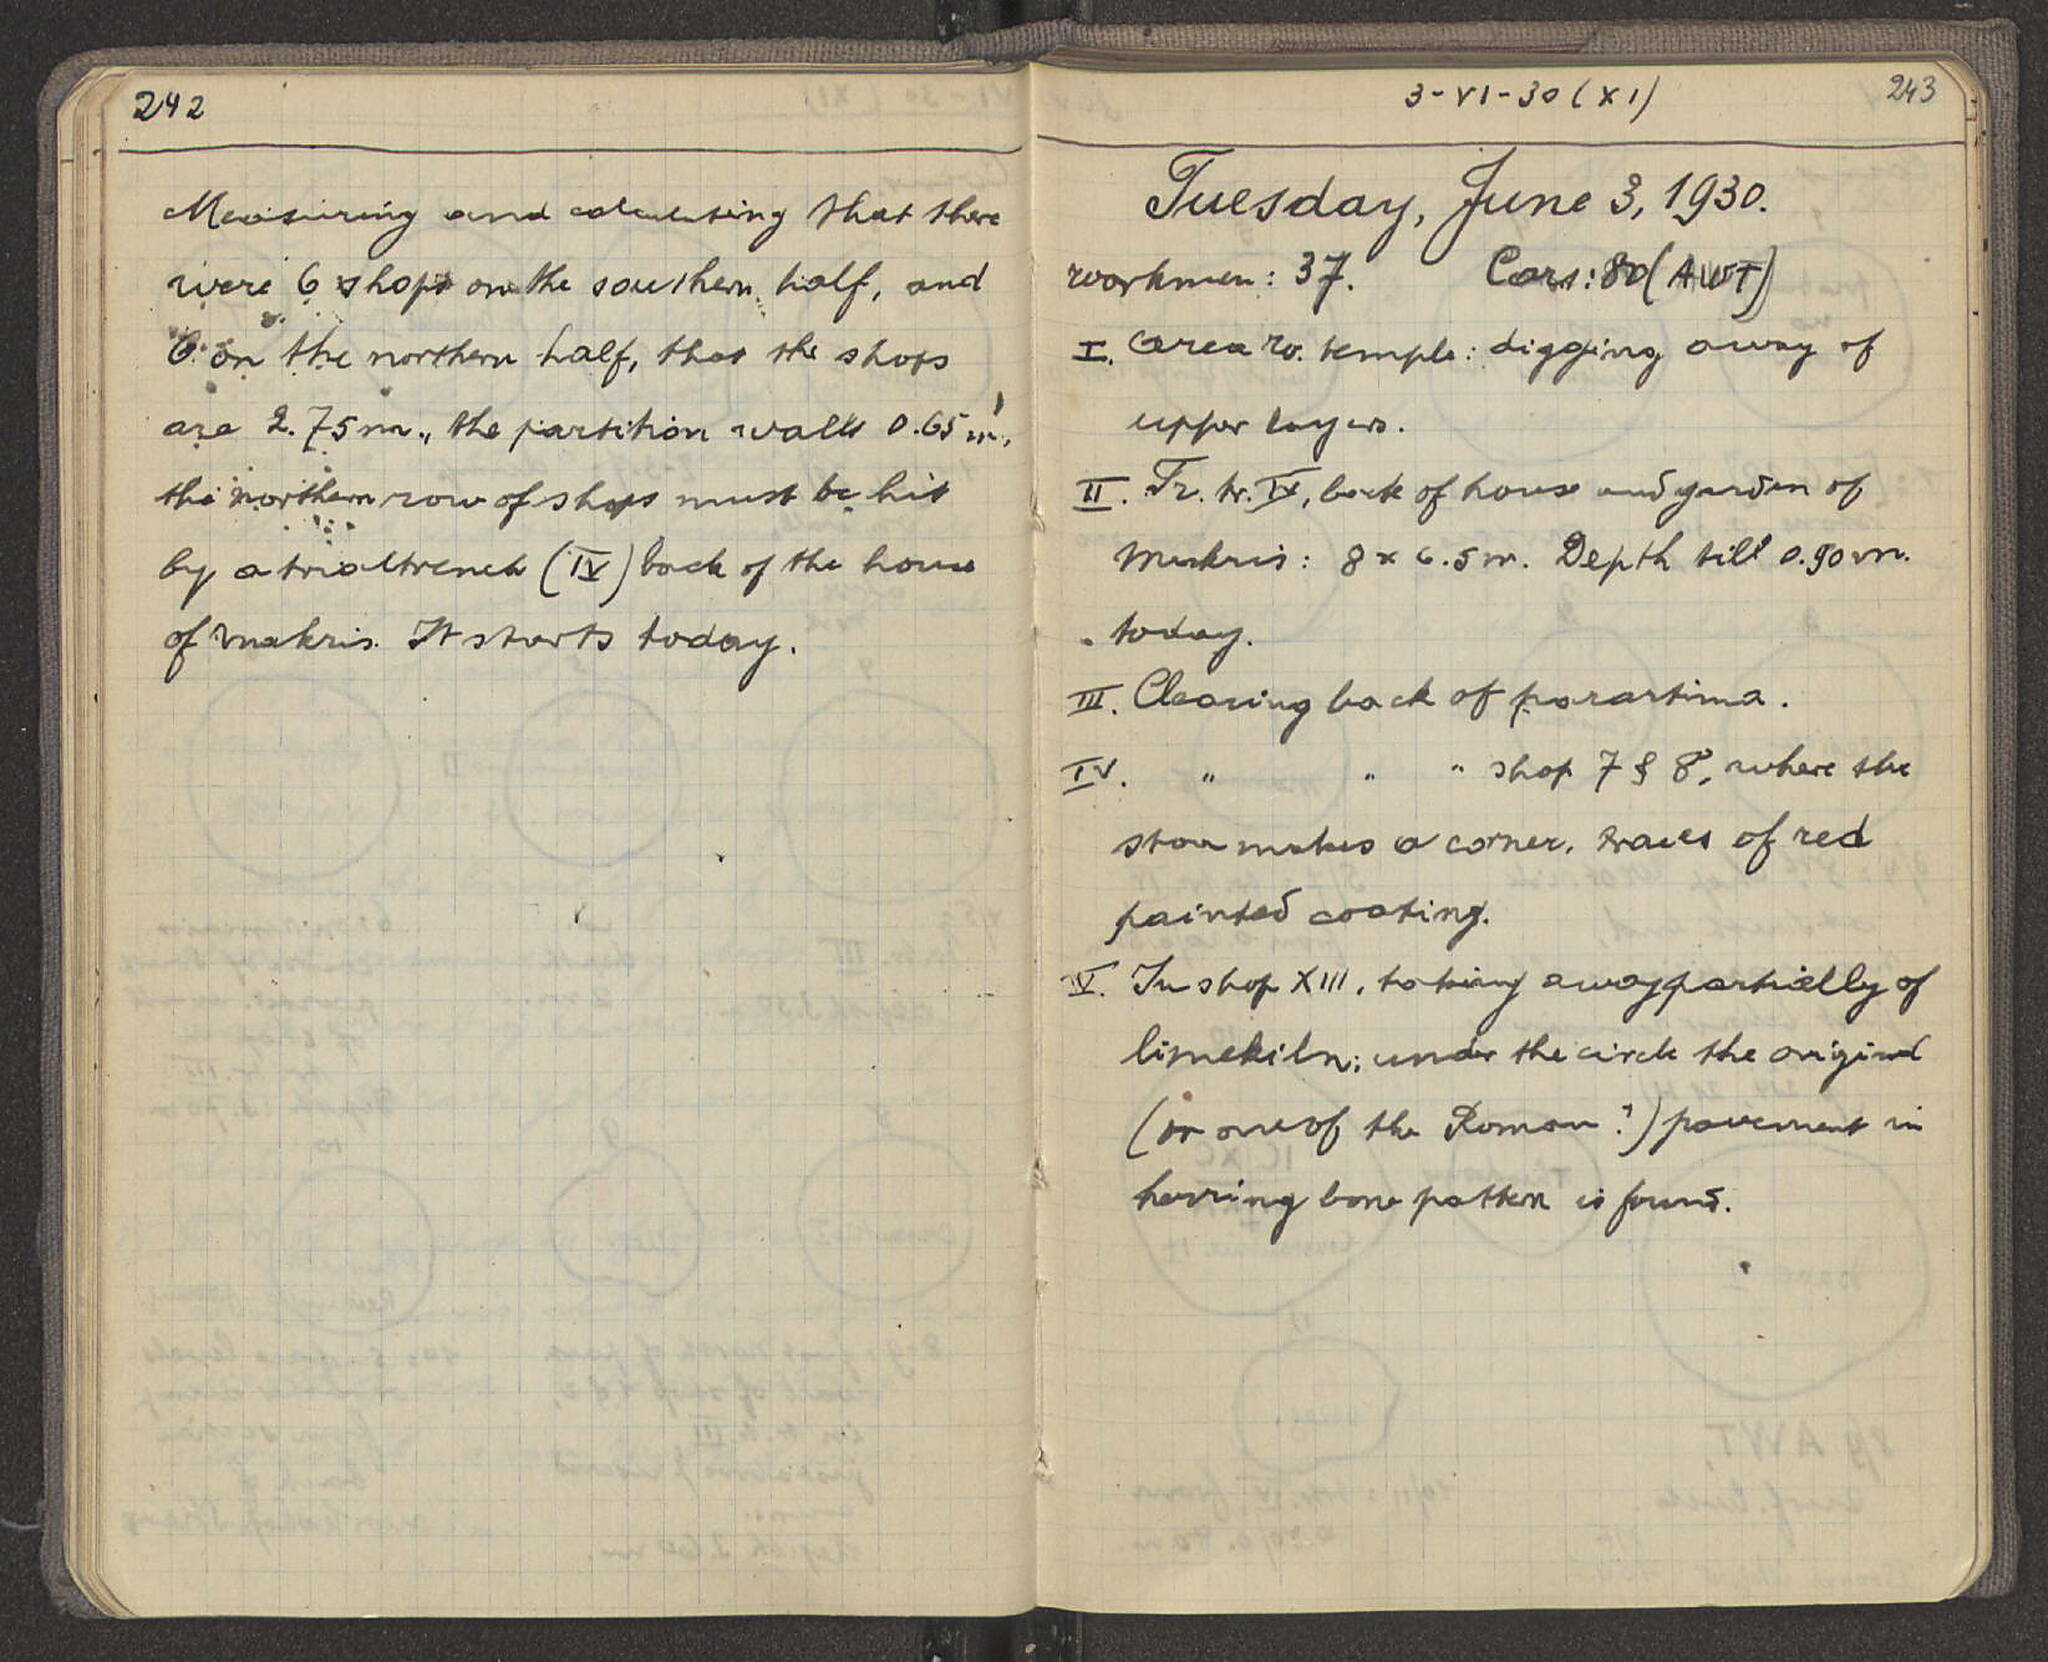 242
Measuring and calculating that there
were 6 shops on the southern half, and
6 on the northern half, that the shops
are 2.75 m., the partition walls 0.65 m,
the northern row of shops must be hit
by a trialtrench (IV) back of the house
of Makris. It starts today.
3-VI-30 (XI)
243
Tuesday, June 3, 1930.
workmen: 37. Cars: 80 (AWT)
I. area w. temple: digging away of
upper layers.
II. Tr. tr. IV, back of house and garden of
Makris: 8 x 6.5 m. Depth till 0.90 m.
today.
III. Clearing back of parartima.
IV. " " " shop 7 & 8, where the
stoa makes a corner, traces of red
painted coating.
V. In shop XIII, taking away partially of
limekiln; under the circle the original
(or one of the Roman?) pavement in
herring bone pattern is found.